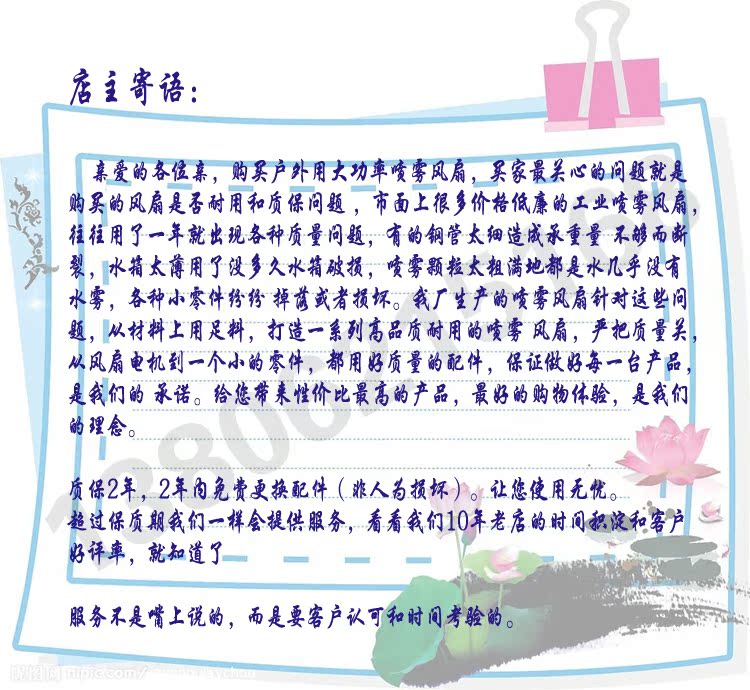 店主寄语：
亲爱的各位亲，购买户外用大功率喷雾风扇，买家最关心的问题就是
购买的风扇是否耐用和质保问题，市面上很多价格低廉的工业喷雾风扇，
往往用了一年就出现各种质量问题，有的钢管太细造成承重量 不够而断
裂，水箱太薄用了没多久水箱破损，喷雾颗粒太粗满地都是水几乎没有
水雾，各种小零件纷纷 掉落或者损坏。我厂生产的喷雾风扇针对这些问
题，从材料上用足料，打造一系列高品质耐用的喷雾 风扇，严把质量关，
从风扇电机到一个小的零件，都用好质量的配件，保证做好每一台产品，
是我们的 承诺。给您带来性价比最高的产品，最好的购物体验，是我们
的理念。
质保2年，2年内免费更换配件（非人为损坏）。让您使用无忧。
超过保质期我们一样会提供服务，看看我们10年老店的时间积淀和客户
好评率，就知道了
服务不是嘴上说的，而是要客户认可和时间考验的。
昵图网 nipic.com/